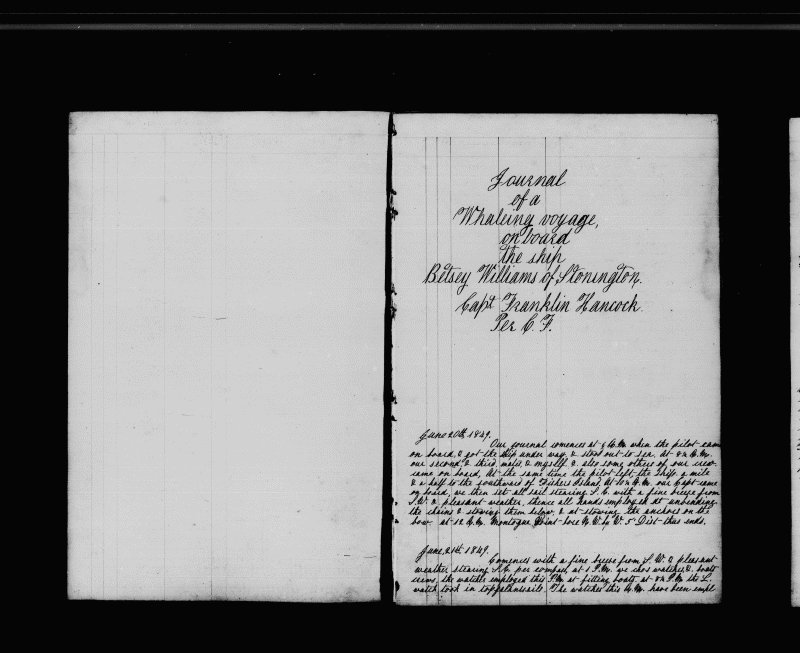 Journal
of a
Whaleing voyage,
on board
the ship
Betsey Williams of Stonington.
Capt Franklin Hancock.
Per C. F.
June 20th, 1849.
Our journal comences at A.M. when the pilot came
on board, & got the ship under way & stood out to sea. At A.M.
our second, & third, mate, & myself & also some others of our crew
came on board, At the same time the pilot left the ship a mile
& a half to the southward of Fishers Island, At 10 A.M. our Capt came
on board, we then set all sail stearing S.E. with a fine breeze from
S.W. & pleasant weather, thence all hands employed at unbending
the chains & stowing them below, & at stowing the anchors on the
bow at 12 A.M. Montogue Point bore N.W. by W. 5 Dist thus ends.
June, 21st, 1849.
Comences with a fine breeze from S.W. & pleasant
weather stearing S.E. per compass, at 1 P.M. we chose watches, & boats
crews, the watches employed this P.M. at fitting boats at P.M. the L.
watch took in topgalantsails. The watches this A.M. have been empl